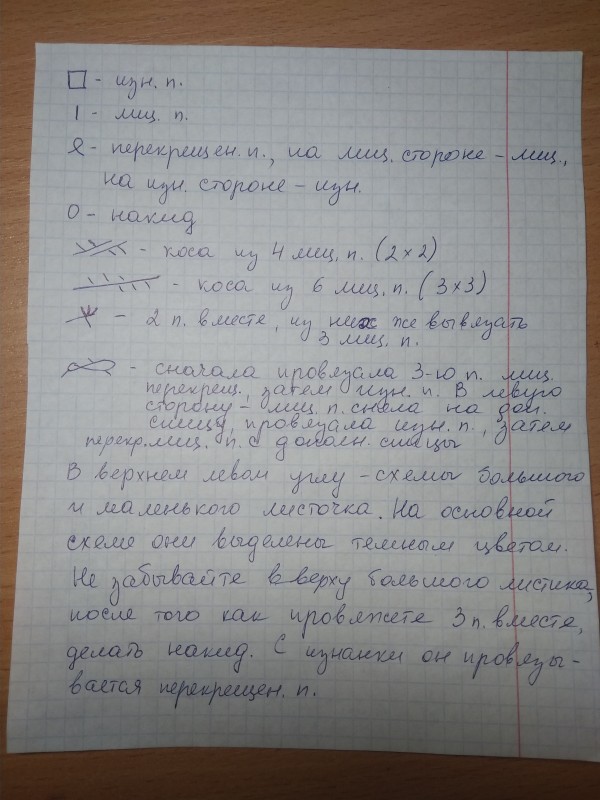 □ - изн. п.
I - лиц. п.
Я - перекрещен. п., на лиц. стороне - лиц.,
на изн. стороне - изн.
О - накид
- коса из 4 лиц. п. (2×2)
- коса из 6 лиц. п. (3×3)
- 2 п. вместе, из них же вывязать
3 лиц. п.
- сначала провязала 3-ю п. лиц.
перекрещ., затем изн. п. В левую
сторону - лиц. п. сняла на доп.
спицу, провязала изн. п., затем
перекр. лиц. п. с дополн. спицы
В верхнем левом углу - схемы большого
и маленького листочка. На основной
схеме они выделены темным цветом.
Не забывайте вверху большого листика,
после того как провяжете 3 п. вместе,
делать накид. С изнанки он провязы-
вается перекрещен. п.